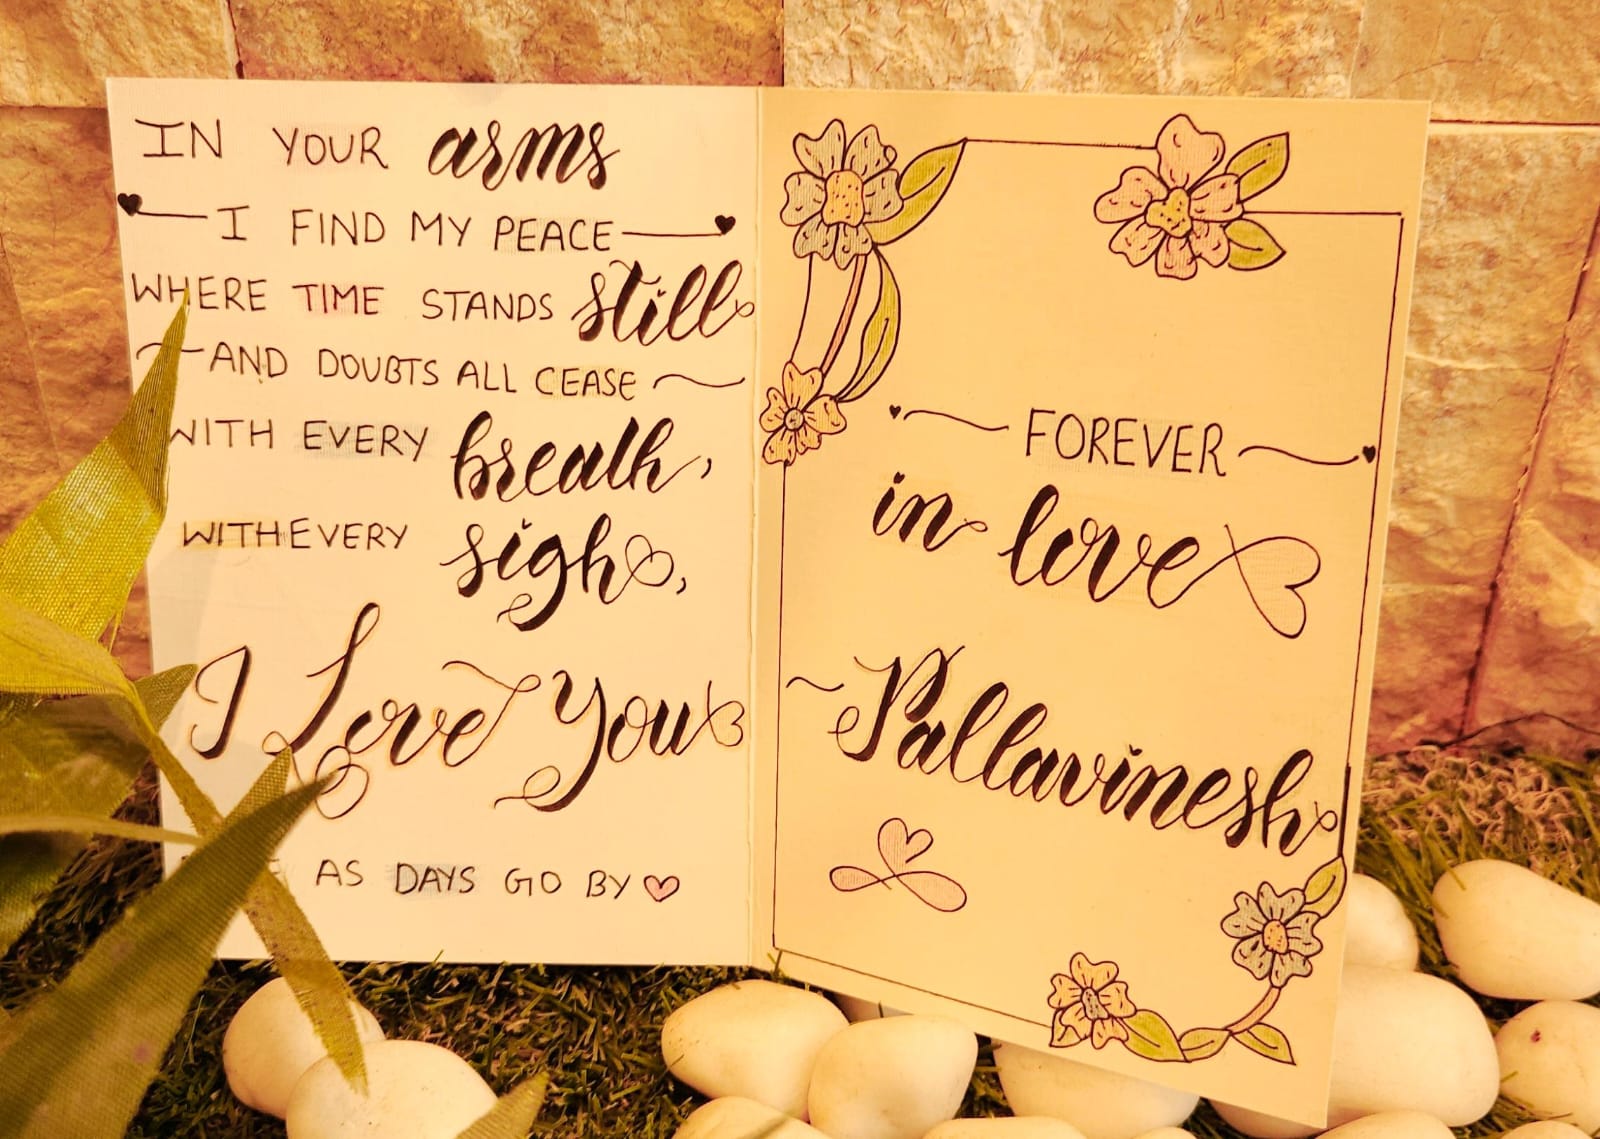 IN YOUR arms
I FIND MY PEACE
WHERE TIME STANDS still
AND DOUBTS ALL CEASE
WITH EVERY breath,
WITH EVERY sigh,
I Love You
AS DAYS GO BY
FOREVER
in love
~Pallavinesh